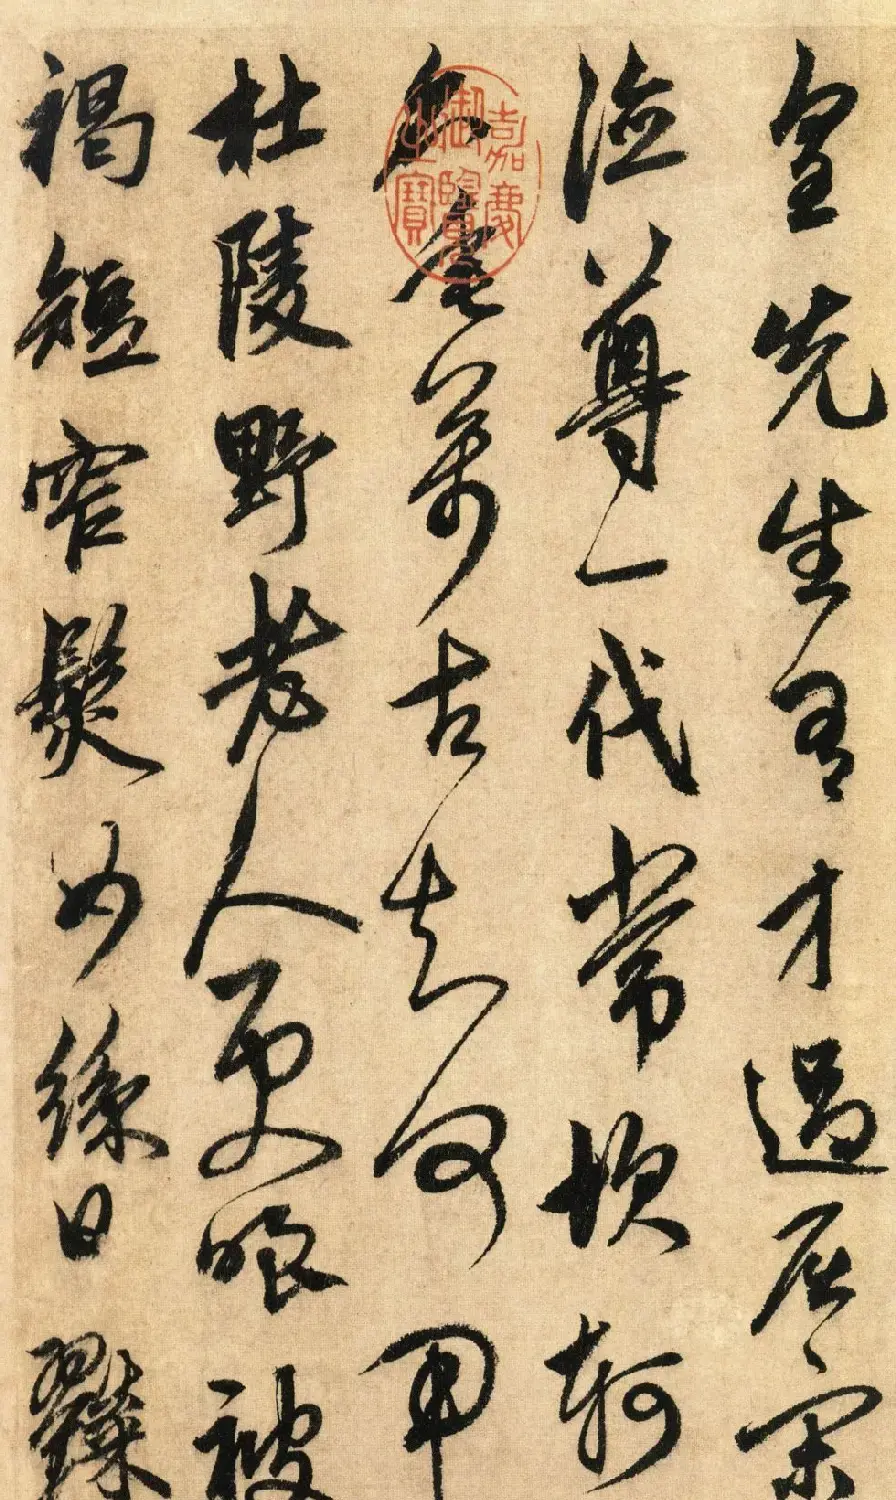 皇先生有才過屈宋
德尊一代常坎軻
名垂萬古知何用
杜陵野老人更嗤被
褐短窄鬢如絲日糴
嘉慶御覽之寶